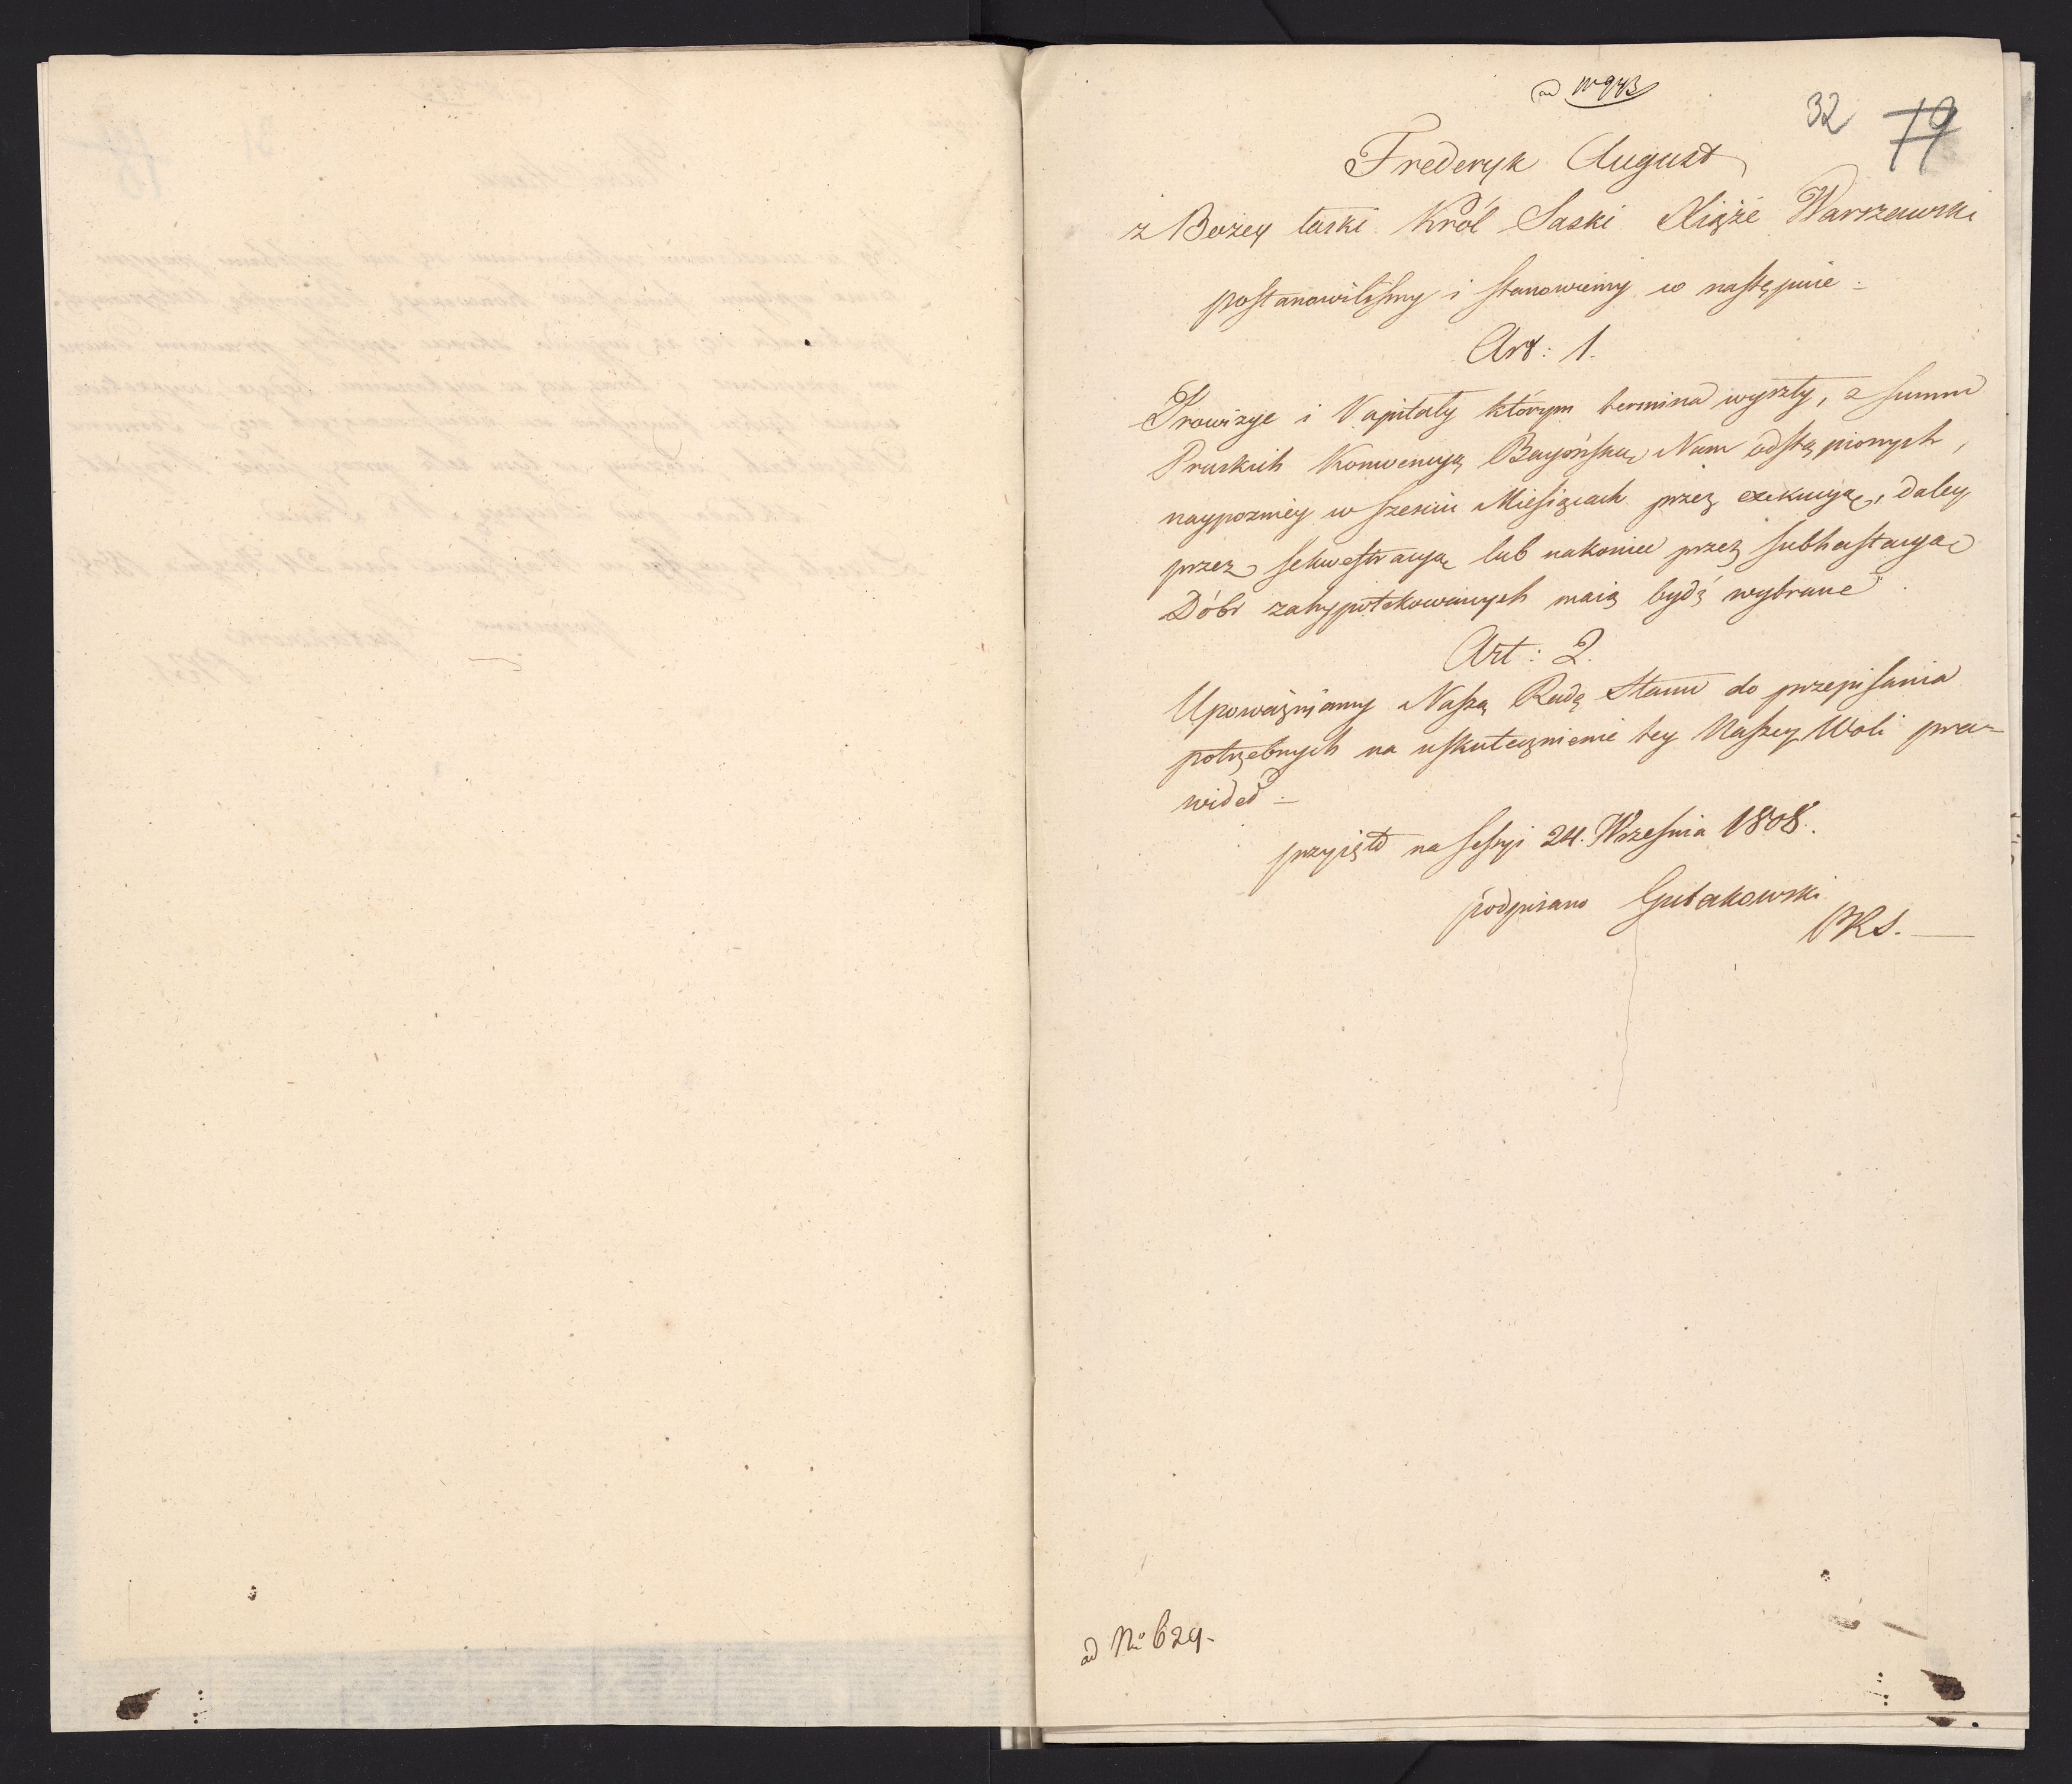 ad Nro 943
32 79
Frederyk August
z Bożey łaski Król Saski Xiąże Warszawski
postanowiliśmy i stanowiemy co następuie -
Art: 1.
Prowizye i Kapitały którym termina wyszły, z summ
Pruskich Konwencyą Bayońską Nam odstąpionych,
naypozniey w sześciu Miesiącach przez exekucyą, daley
przez sekwestracyą lub nakoniec przez subhastacyą
Dóbr zahypotekowanych maią bydź wybrane.
Art: 2.
Upoważniamy Naszą Radę Stanu do przepisania
potrzebnych na uskutecznienie tey Naszey Woli pra=
wideł -
przyięto na Sessyi 24. Września 1808.
podpisano Gutakowski
PRS.
ad No 629-